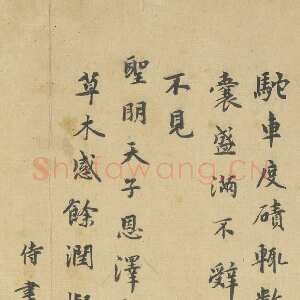 駝車度磧輒數
囊盛滿不辭
不見
聖明天子恩澤
草木感餘潤
侍書
Shufawang.CN